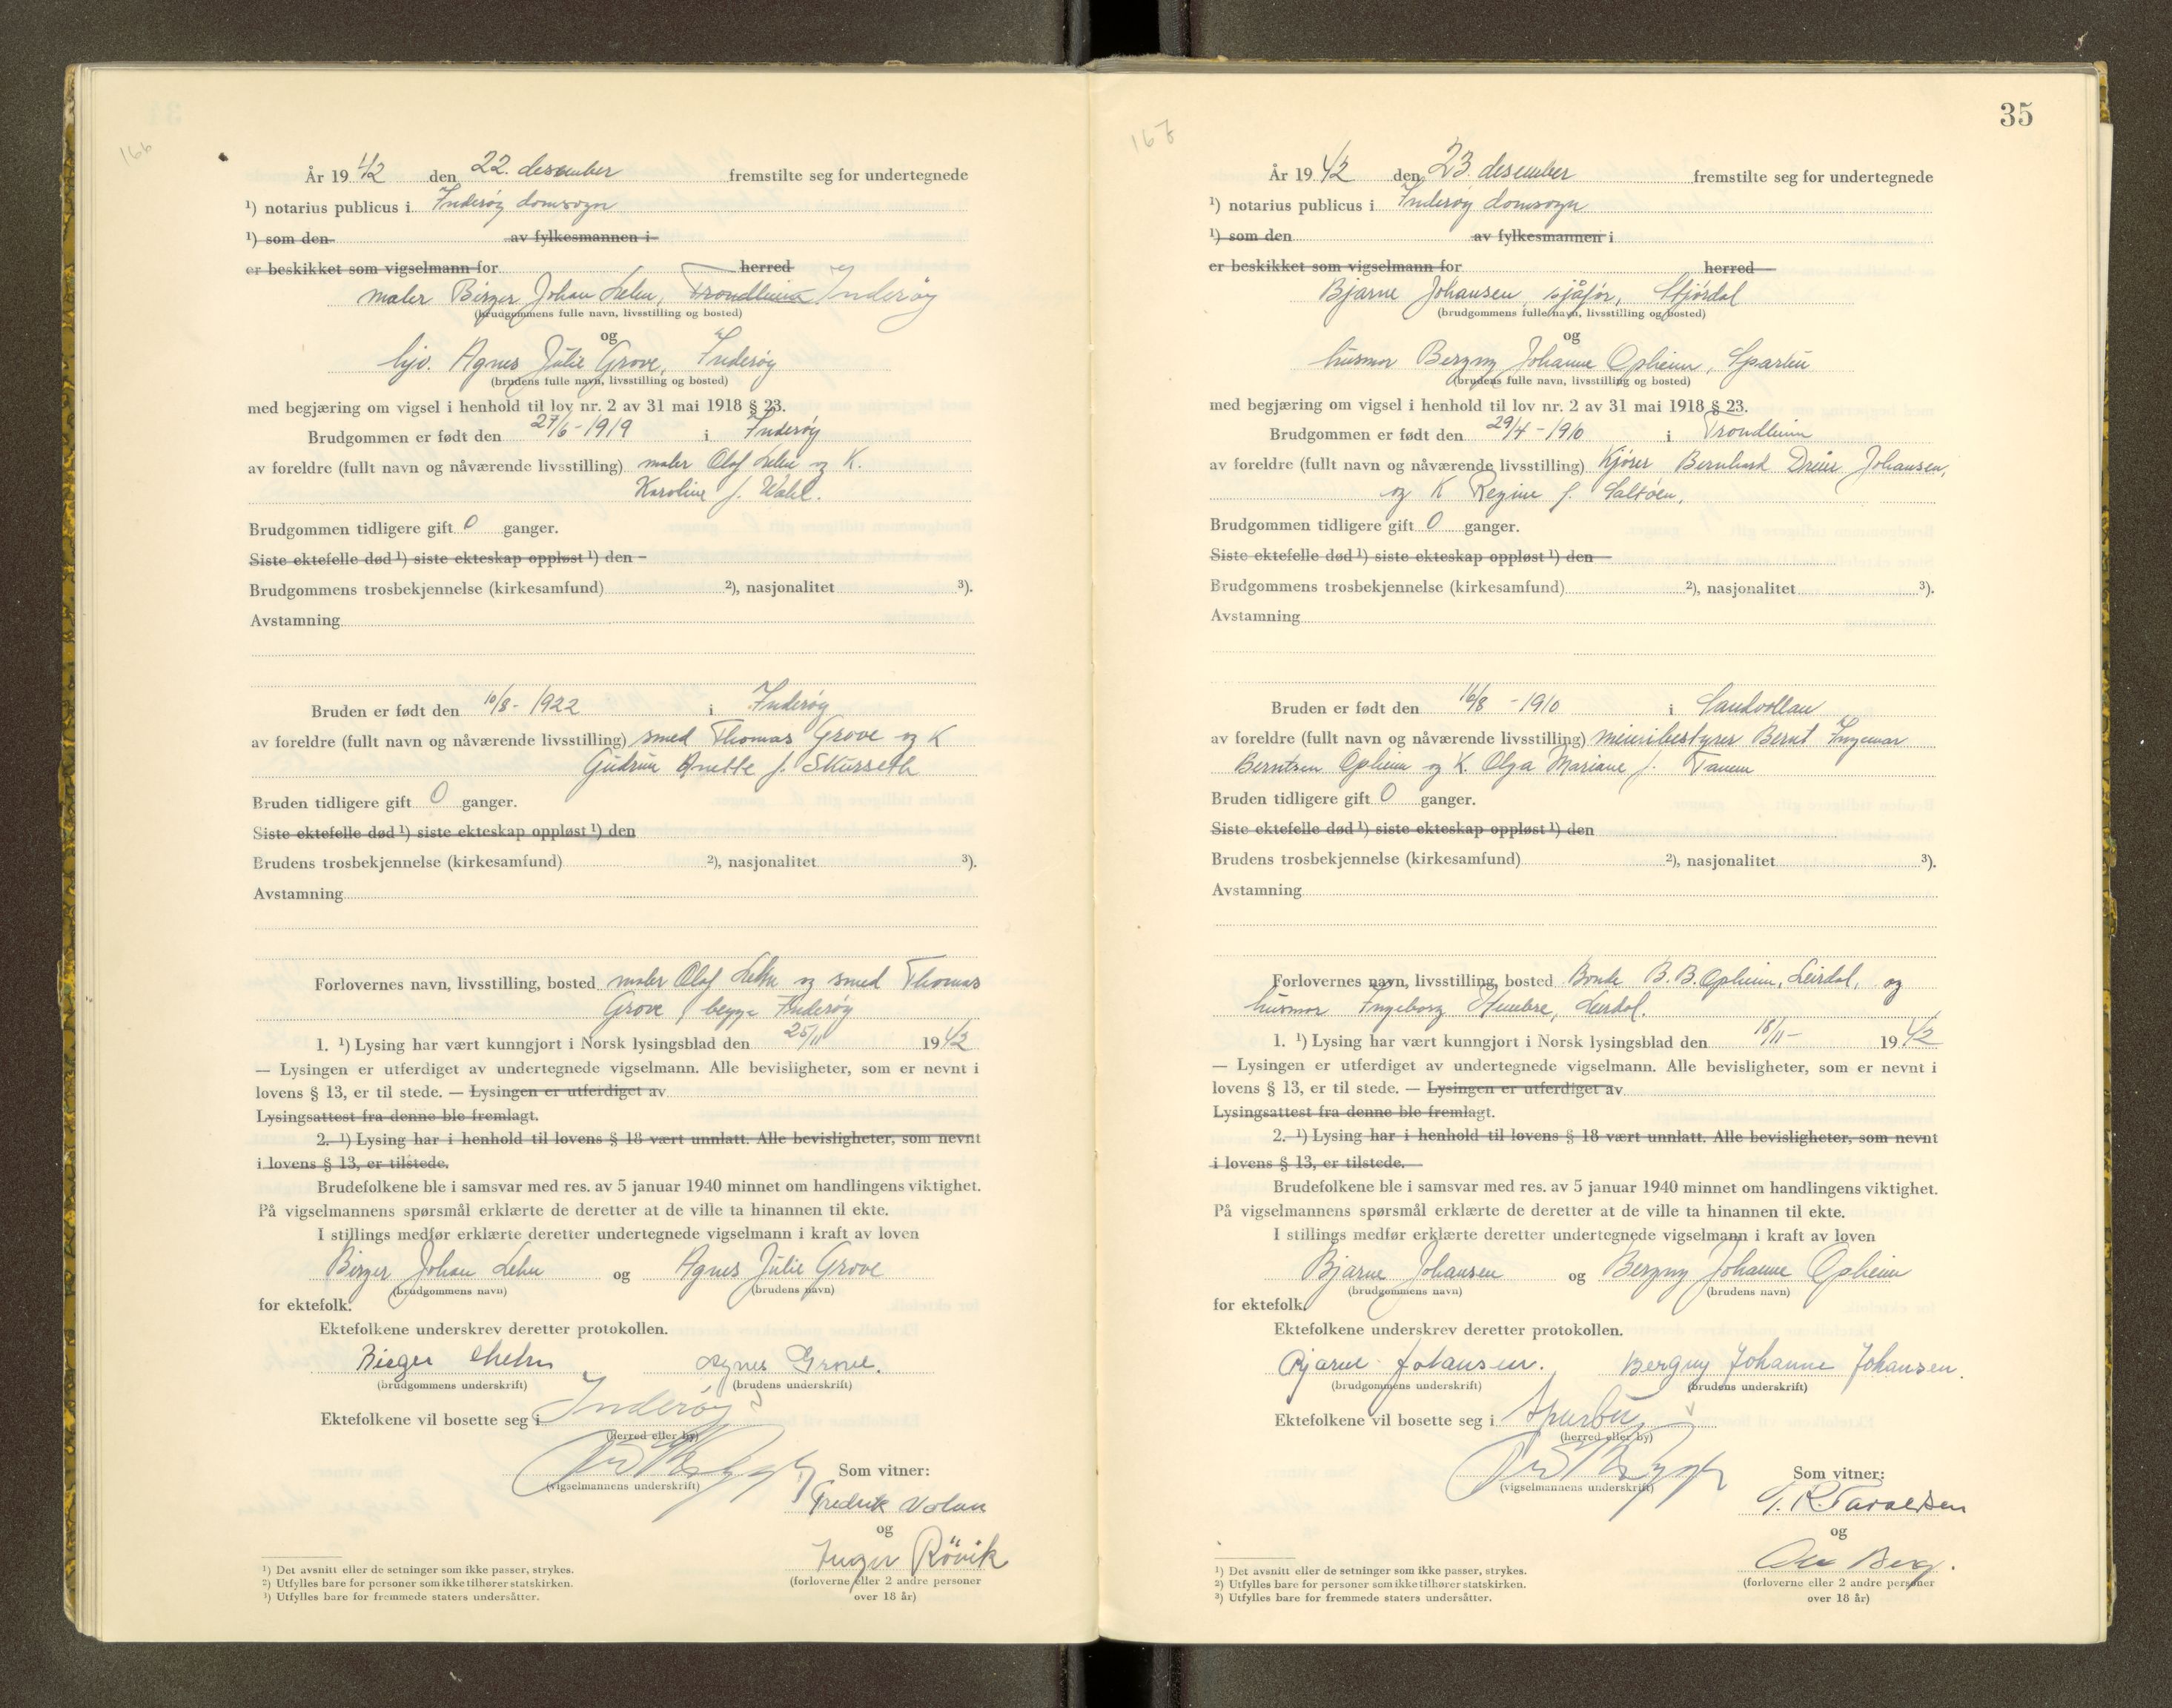 166
År 1942 den 22. desember fremstilte seg for undertegnede
¹) notarius publicus i Inderøy domsogn
¹) som den av fylkesmannen i
er beskikket som vigselmann for herred
maler Birger Johan Lehn, Trondheim Inderøy
(brudgommens fulle navn, livsstilling og bosted)
og
hjv. Agnes Julie Grove, Inderøy
(brudens fulle navn, livsstilling og bosted)
med begjæring om vigsel i henhold til lov nr. 2 av 31 mai 1918 § 23.
Brudgommen er født den 27/6-1919 i Inderøy
av foreldre (fullt navn og nåværende livsstilling) maler Olaf Lehn og K.
Karoline f. Wahl.
Brudgommen tidligere gift 0 ganger.
Siste ektefelle død ¹) siste ekteskap oppløst ¹) den
Brudgommens trosbekjennelse (kirkesamfund) ²), nasjonalitet ³).
Avstamning
Bruden er født den 10/8-1922 i Inderøy
av foreldre (fullt navn og nåværende livsstilling) smed Thomas Grove og K
Gudrun Anette f. Skurseth
Bruden tidligere gift 0 ganger.
Siste ektefelle død ¹) siste ekteskap oppløst ¹) den
Brudens trosbekjennelse (kirkesamfund) ²), nasjonalitet ³).
Avstamning
Forlovernes navn, livsstilling, bosted maler Olaf Lehn og smed Thomas
Grove, begge Inderøy
1. ¹) Lysing har vært kunngjort i Norsk lysingsblad den 25/11 1942
— Lysingen er utferdiget av undertegnede vigselmann. Alle bevisligheter, som er nevnt i
lovens § 13, er til stede. — Lysingen er utferdiget av
Lysingsattest fra denne ble fremlagt.
2. ¹) Lysing har i henhold til lovens § 18 vært unnlatt. Alle bevisligheter, som nevnt
i lovens § 13, er tilstede.
Brudefolkene ble i samsvar med res. av 5 januar 1940 minnet om handlingens viktighet.
På vigselmannens spørsmål erklærte de deretter at de ville ta hinannen til ekte.
I stillings medfør erklærte deretter undertegnede vigselmann i kraft av loven
Birger Johan Lehn og Agnes Julie Grove
(brudgommens navn) (brudens navn)
for ektefolk.
Ektefolkene underskrev deretter protokollen.
Birger Lehn Agnes Grove.
(brudgommens underskrift) (brudens underskrift)
Ektefolkene vil bosette seg i Inderøy
(herred eller by)
(vigselmannens underskrift)
Som vitner:
Fredrik Volan
og
Inger Rövik
(forloverne eller 2 andre personer
over 18 år)
¹) Det avsnitt eller de setninger som ikke passer, strykes.
²) Utfylles bare for personer som ikke tilhører statskirken.
³) Utfylles bare for fremmede staters undersåtter.
167
35
År 1942 den 23. desember fremstilte seg for undertegnede
¹) notarius publicus i Inderøy domsogn
¹) som den av fylkesmannen i
er beskikket som vigselmann for herred
Bjarne Johansen, sjåfør, Stjørdal
(brudgommens fulle navn, livsstilling og bosted)
og
husmor Bergny Johanne Opheim, Sparbu
(brudens fulle navn, livsstilling og bosted)
med begjæring om vigsel i henhold til lov nr. 2 av 31 mai 1918 § 23.
Brudgommen er født den 29/4-1910 i Trondheim
av foreldre (fullt navn og nåværende livsstilling) Kjører Bernhard Dreier Johansen,
og K Regine f. Saltöen,
Brudgommen tidligere gift 0 ganger.
Siste ektefelle død ¹) siste ekteskap oppløst ¹) den
Brudgommens trosbekjennelse (kirkesamfund) ²), nasjonalitet ³).
Avstamning
Bruden er født den 16/8-1910 i Sandvollan
av foreldre (fullt navn og nåværende livsstilling) meieribestyrer Bernt Ingemar
Berntsen Opheim og K. Olga Mariane f. Tanem
Bruden tidligere gift 0 ganger.
Siste ektefelle død ¹) siste ekteskap oppløst ¹) den
Brudens trosbekjennelse (kirkesamfund) ²), nasjonalitet ³).
Avstamning
Forlovernes navn, livsstilling, bosted Bonde B. B. Opheim, Leirdal, og
husmor Ingeborg Hembre, Leirdal.
1. ¹) Lysing har vært kunngjort i Norsk lysingsblad den 18/11- 1942
— Lysingen er utferdiget av undertegnede vigselmann. Alle bevisligheter, som er nevnt i
lovens § 13, er til stede. — Lysingen er utferdiget av
Lysingsattest fra denne ble fremlagt.
2. ¹) Lysing har i henhold til lovens § 18 vært unnlatt. Alle bevisligheter, som nevnt
i lovens § 13, er tilstede.
Brudefolkene ble i samsvar med res. av 5 januar 1940 minnet om handlingens viktighet.
På vigselmannens spørsmål erklærte de deretter at de ville ta hinannen til ekte.
I stillings medfør erklærte deretter undertegnede vigselmann i kraft av loven
Bjarne Johansen og Bergny Johanne Opheim
(brudgommens navn) (brudens navn)
for ektefolk.
Ektefolkene underskrev deretter protokollen.
Bjarne Johansen. Bergny Johanne Johansen.
(brudgommens underskrift) (brudens underskrift)
Ektefolkene vil bosette seg i Sparbu
(herred eller by)
(vigselmannens underskrift)
Som vitner:
R. Taraldsen
og
Berg.
(forloverne eller 2 andre personer
over 18 år)
¹) Det avsnitt eller de setninger som ikke passer, strykes.
²) Utfylles bare for personer som ikke tilhører statskirken.
³) Utfylles bare for fremmede staters undersåtter.